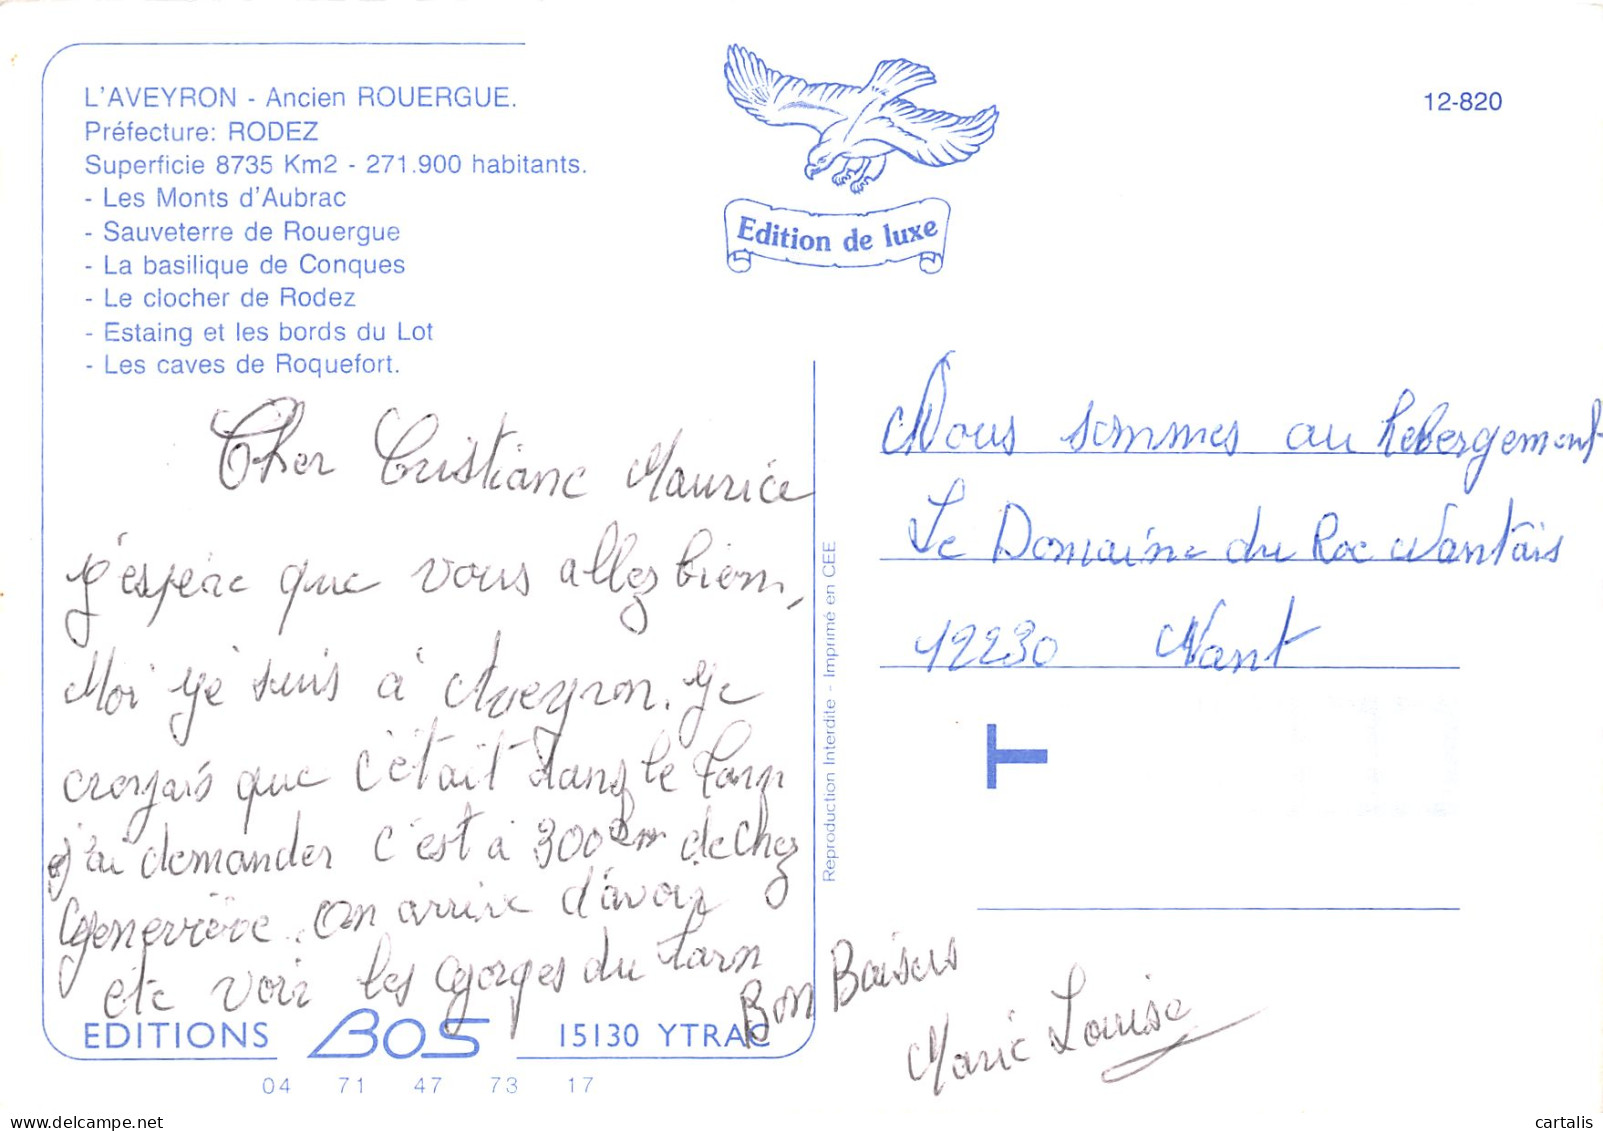 L'AVEYRON - Ancien ROUERGUE.
Préfecture: RODEZ
Superficie 8735 Km2 - 271.900 habitants.
- Les Monts d'Aubrac
- Sauveterre de Rouergue
- La basilique de Conques
- Le clocher de Rodez
- Estaing et les bords du Lot
- Les caves de Roquefort.
Edition de luxe
12-820
Cher Cristiane Maurice
j'espère que vous allez bien,
Moi je suis à Aveyron. Je
croyais que c'était dans le Tarn
j'ai demander c'est à 300 Km de chez
Geneviève. On arrive d'avoir
été voir les Gorges du Tarn
Bon Baisers
Marie Louise
Nous sommes au hebergement
Le Domaine du Roc Nantais
12230 Nant
T
Reproduction Interdite - Imprimé en CEE
EDITIONS BOS 15130 YTRAC
04 71 47 73 17
delcampe.net
cartalis